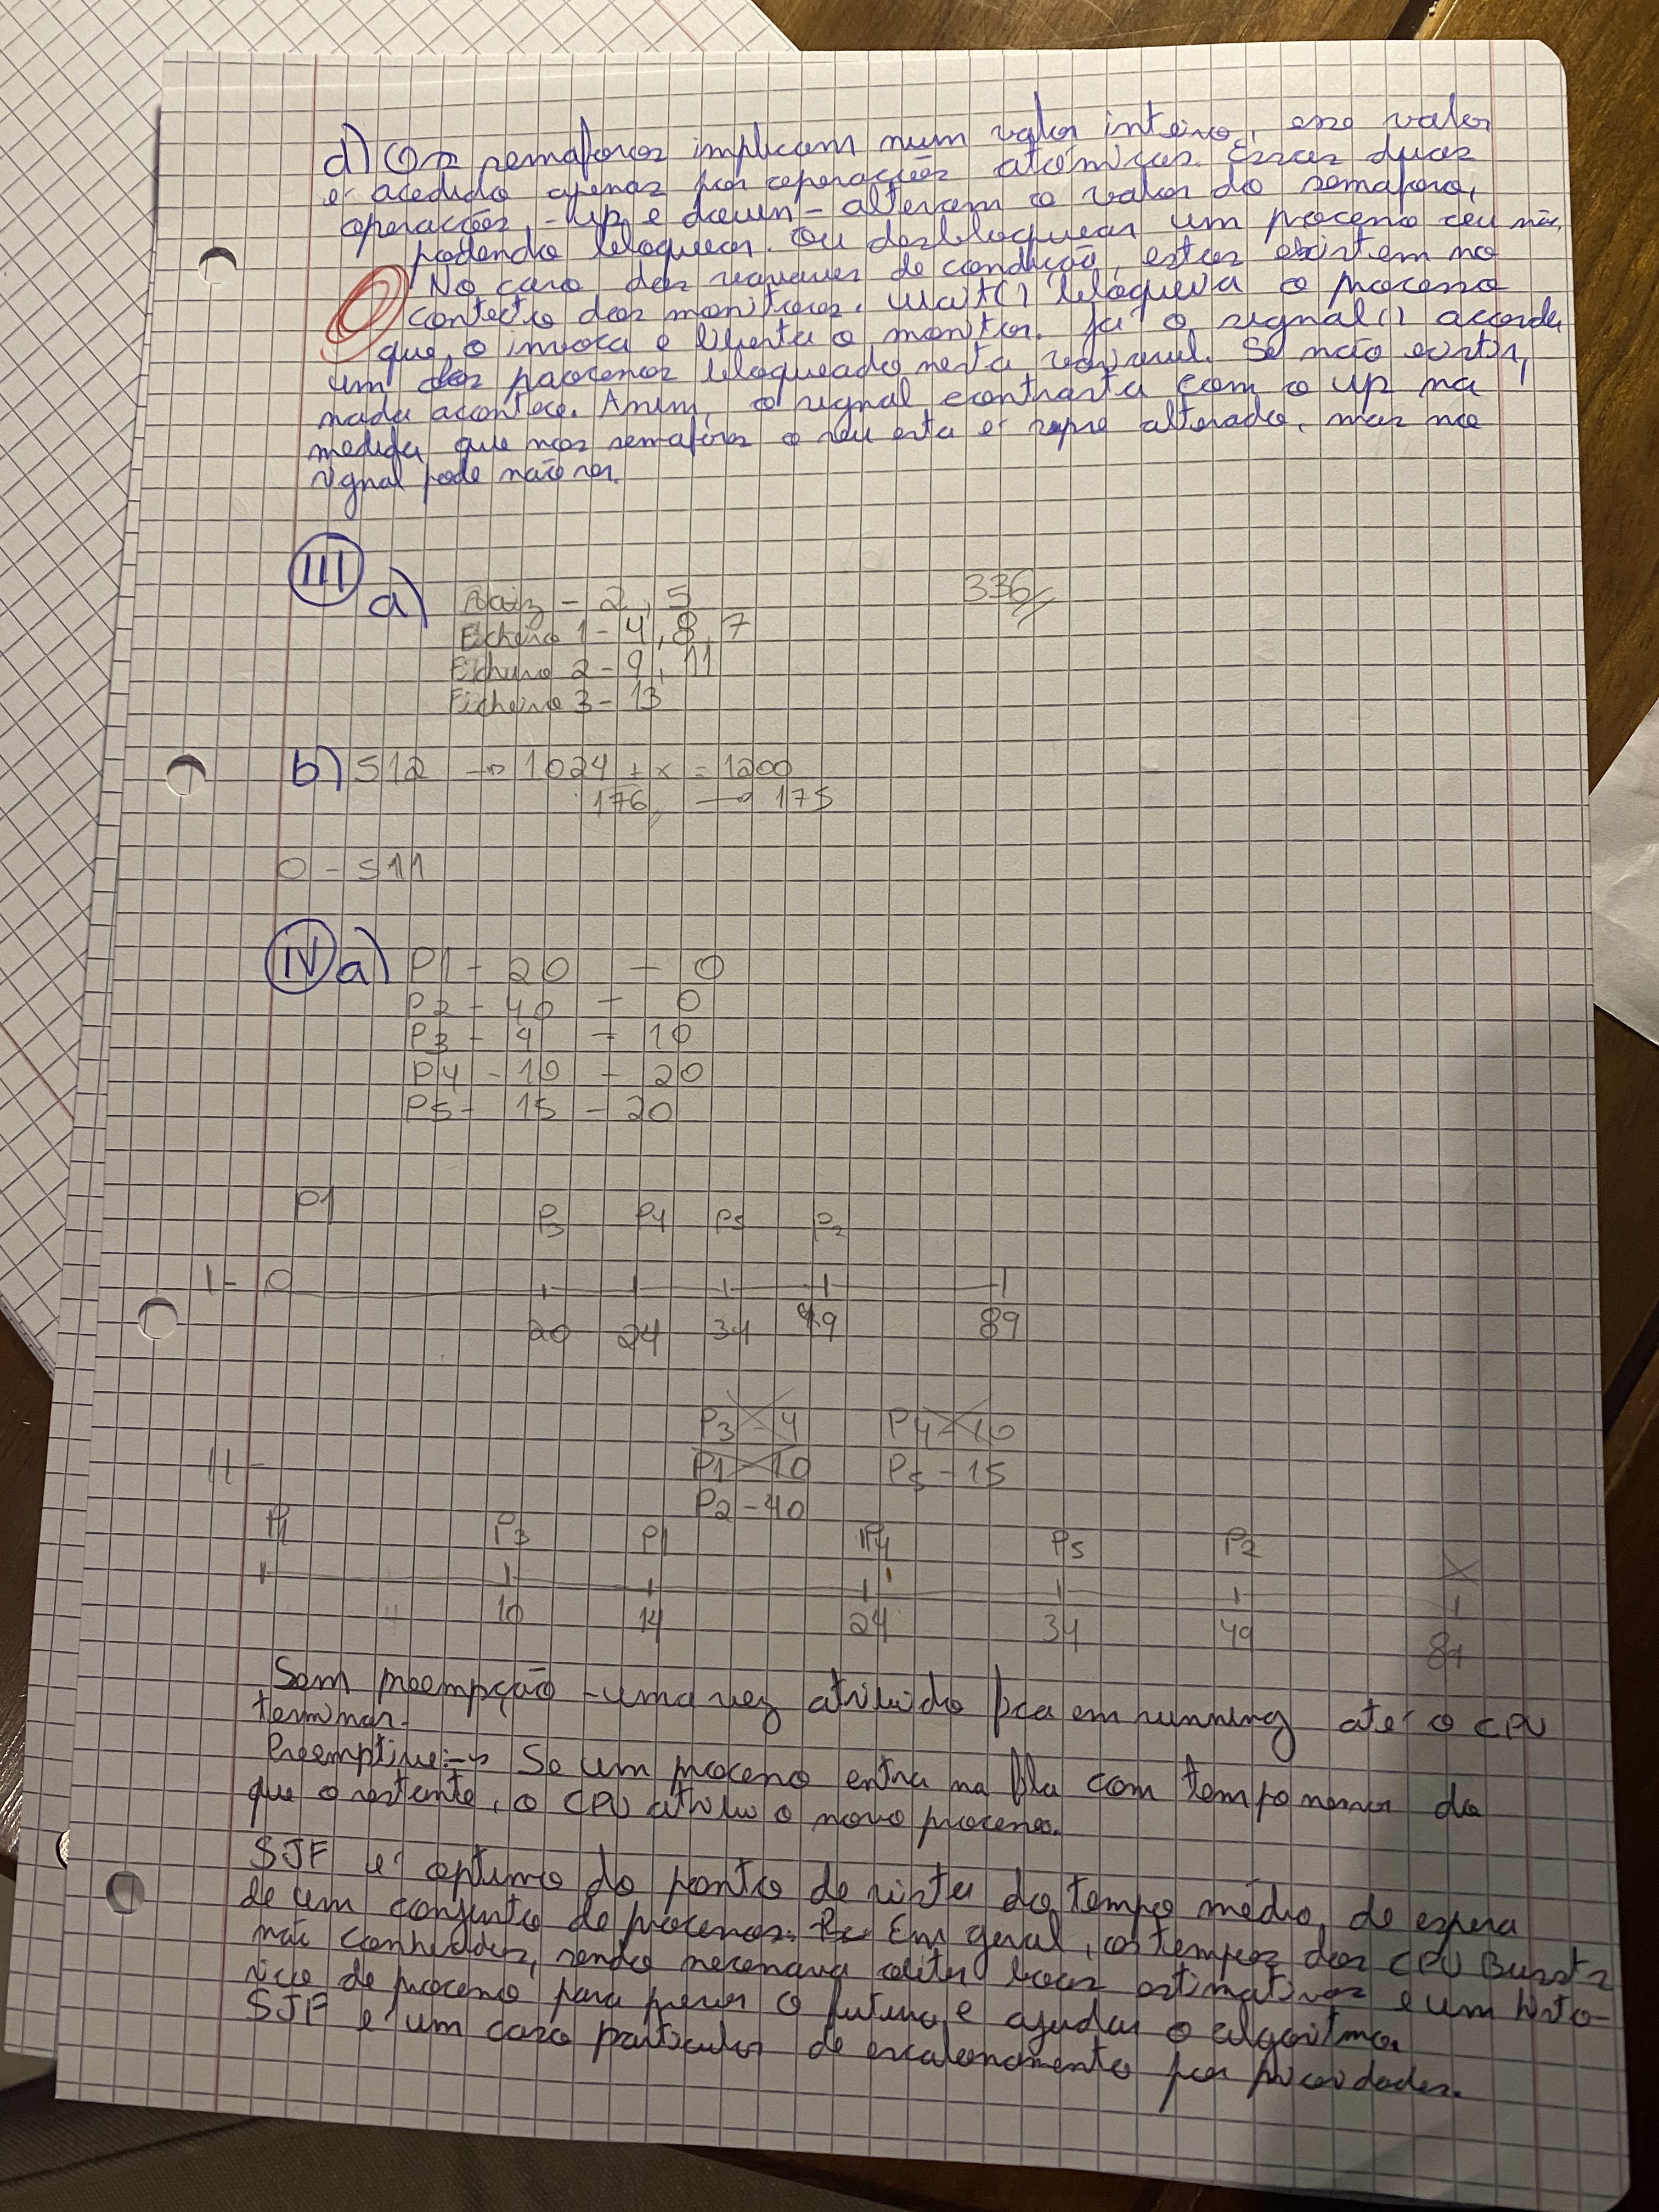 d) Os semaforos implicam num valor inteiro, esse valor
é acedido apenas por operações atómicas. Essas duas
operações, - up e down - alteram o valor do semaforo,
podendo bloquear ou desbloquear um processo ou não.
No caso das variaveis de condição, estas existem no
contexto dos monitores. wait() bloqueia o processo
que o invoca e liberta o monitor. Já o signal() acorda
um dos processos bloqueado nesta variavel. Se não existir,
nada acontece. Assim, o signal contrasta com o up na
medida que nos semaforos o seu esta é sempre alterado, mas no
signal pode não ser.
III
a) Raiz - 2, 5 336
Ficheiro 1 - 4, 8, 7
Ficheiro 2 - 9, 11
Ficheiro 3 - 13
b) 512 → 1024 + x = 1200
176 → 175
0 - 511
IV a) P1 - 20 - 0
P2 - 40 - 0
P3 - 4 - 10
P4 - 10 - 20
P5 - 15 - 20
P1 P3 P4 P5 P2
I - 0
20 24 34 49 89
P3 - 4 P4 - 10
II - P1 - 10 P5 - 15
P2 - 40
P1 P3 P1 P4 P5 P2 X
10 14 24 34 49 89
Sem preempção - uma vez atribuido fica em running até o CPU
terminar.
Preemptive: → Se um processo entra na fila com tempo menor do
que o restante, o CPU atribui o novo processo.
SJF é optimo do ponto de vista do tempo médio de espera
de um conjunto de processos. Em geral, os tempos dos CPU Bursts
não conhecidos, sendo necessaria obter boas estimativas e um histo-
rico de processo para prever o futuro e ajudar o algoritmo.
SJF é um caso particular de escalonamento por prioridades.